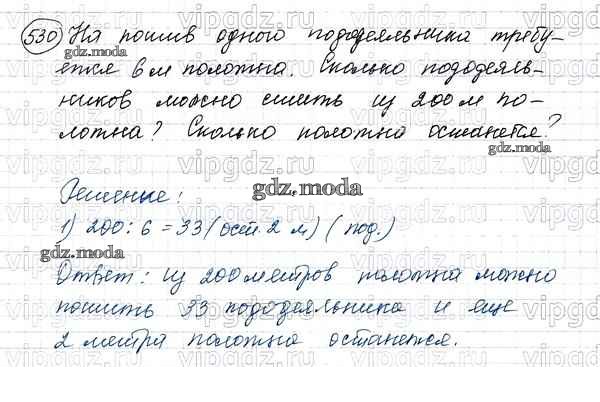 530 На пошив одного пододеяльника требу-
ется 6 м полотна. Сколько пододеяль-
ников можно сшить из 200 м по-
лотна? Сколько полотна останется?
gdz.moda
Решение:
gdz.moda
1) 200 : 6 = 33 (ост. 2 м) (под.)
gdz.moda
Ответ: из 200 метров полотна можно
пошить 33 пододеяльника и еще
2 метра полотна останется.
vipgdz.ru